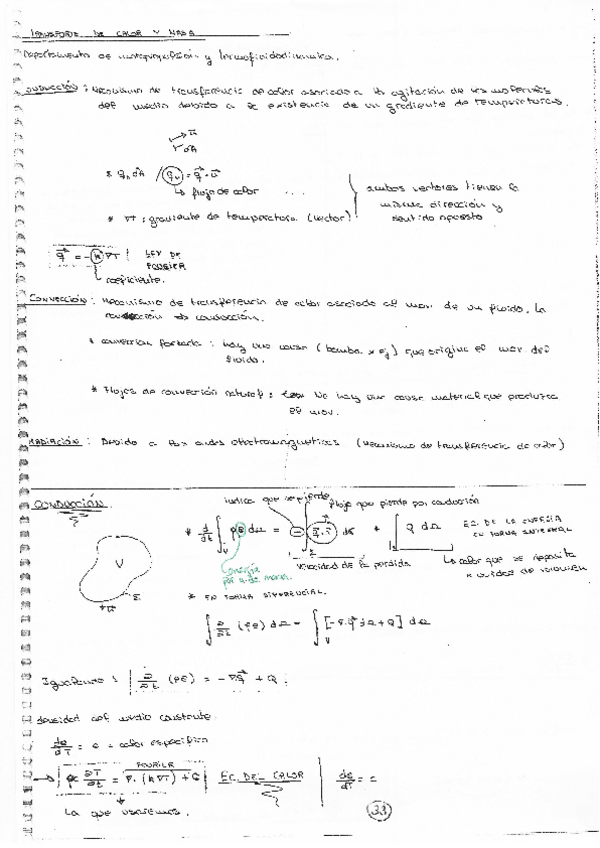 TRANSPORTE DE CALOR Y MASA
Departamento de motopropulsión y termofluidodinámica.
CONDUCCIÓN : Mecanismo de transferencia de calor asociado a la agitación de las moléculas
del medio debido a la existencia de un gradiente de temperaturas.
n
dA
* qn dA / qn = q · n
↳ flujo de calor
* ∇T : gradiente de temperatura (vector)
ambos vectores tienen la
misma dirección y
sentido opuesto
q = -k ∇T | LEY DE
FOURIER
coeficiente.
CONVECCIÓN : Mecanismo de transferencia de calor asociado al mov. de un fluido. La
conducción.
* convección forzada : hay una causa (bomba x ej) que origina el mov. del
fluido.
* Flujos de convección natural : No hay una causa material que produzca
el mov.
RADIACIÓN : Debido a las ondas electromagnéticas (mecanismo de transferencia de calor)
CONDUCCIÓN
indica que se pierde
flujo que pierde por conducción
* d/dt ∫V ρe dΩ = - ∫Σ q · n dσ + ∫ Q dΩ
EC. DE LA ENERGÍA
EN FORMA INTEGRAL
V
Σ
n
energía
por u. de masa
velocidad de la pérdida
calor que se deposita
x unidad de volumen
* EN FORMA DIFERENCIAL.
∫ ∂/∂t (ρe) dΩ = ∫V [-∇·q + Q] dΩ
Igualando : | ∂/∂t (ρe) = -∇·q + Q
densidad del medio constante
de/dT = c = calor específico
FOURIER
→ | ρc ∂T/∂t = ∇·(k∇T) + Q | EC. DEL CALOR | de/dT = c
La que usaremos.